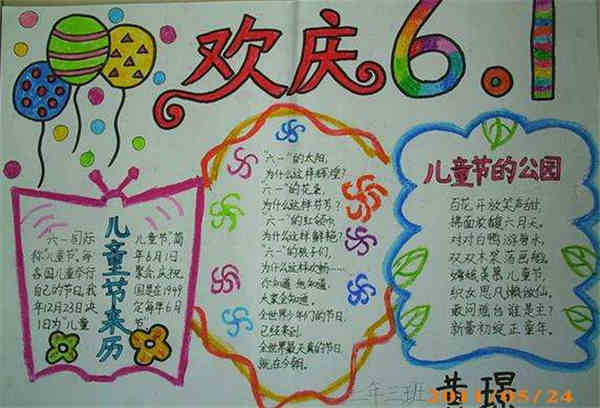 欢庆6.1
儿童节来历
"六一"国际
称"儿童节",每
各国儿童举行
自己的节日。我
年12月23日决
1日为"儿童
儿童节"简
年6月1日
聚会,庆祝
国是在1949
定每年6月
节。
"六一"的太阳,
为什么这样辉煌?
"六一"的花朵,
为什么这样芬芳?
"六一"的红领巾
为什么这样鲜艳?
"六一"的孩子们,
为什么这样欢畅……
你知道 他知道,
大家全知道。
全世界少年们的节日,
已经来到。
全世界最天真的节日
就在今朝。
儿童节的公园
百花开放笑声甜
拂面浓馥六月天。
对对白鸭游碧水,
双双木桨荡画船。
嫦娥羡慕儿童节,
织女思凡懒做仙。
敢问瑶台谁是主?
新蕾初绽正童年。
二年三班
黄琨
2011/05/24